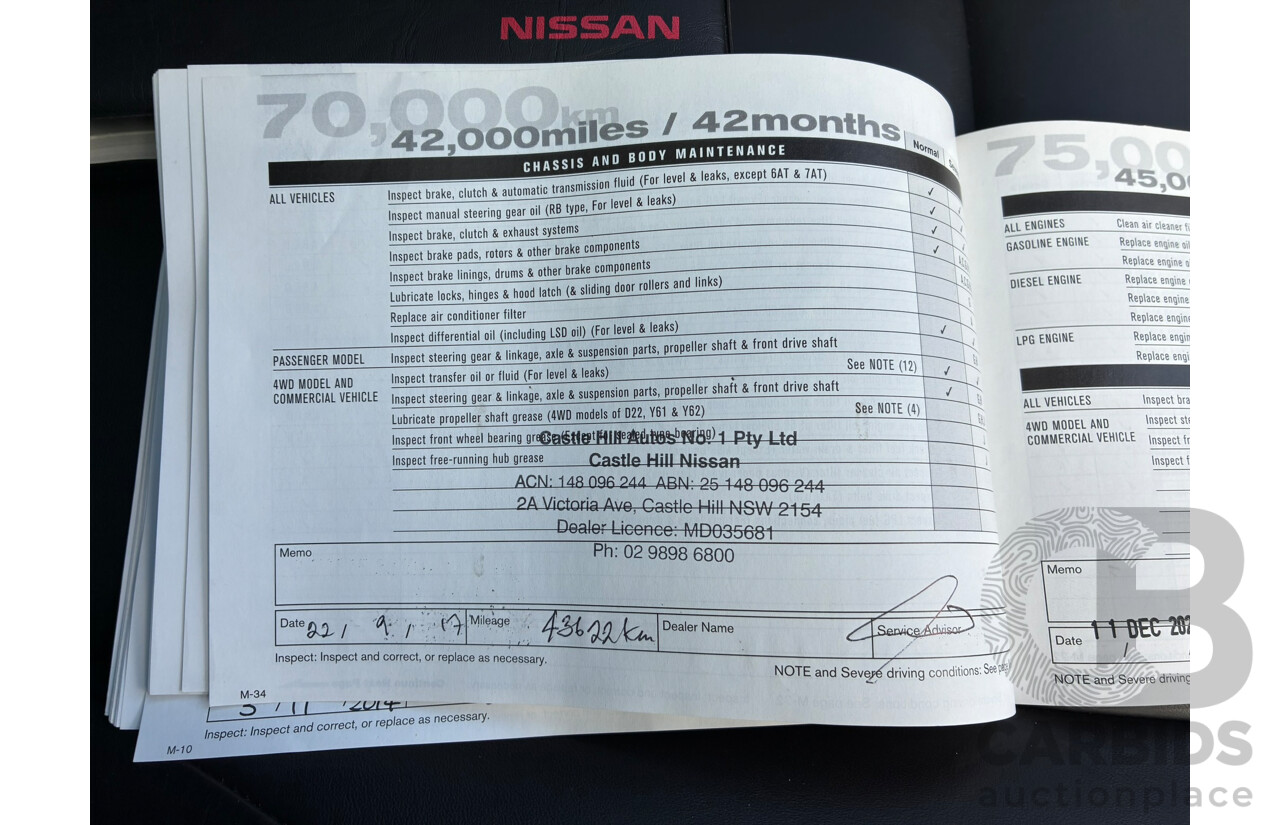 NISSAN
70,000km
42,000miles / 42months
CHASSIS AND BODY MAINTENANCE
Normal
ALL VEHICLES
Inspect brake, clutch & automatic transmission fluid (For level & leaks, except 6AT & 7AT)
Inspect manual steering gear oil (RB type, For level & leaks)
Inspect brake, clutch & exhaust systems
Inspect brake pads, rotors & other brake components
Inspect brake linings, drums & other brake components
Lubricate locks, hinges & hood latch (& sliding door rollers and links)
Replace air conditioner filter
Inspect differential oil (including LSD oil) (For level & leaks)
PASSENGER MODEL
Inspect steering gear & linkage, axle & suspension parts, propeller shaft & front drive shaft
4WD MODEL AND
COMMERCIAL VEHICLE
Inspect transfer oil or fluid (For level & leaks) See NOTE (12)
Inspect steering gear & linkage, axle & suspension parts, propeller shaft & front drive shaft
Lubricate propeller shaft grease (4WD models of D22, Y61 & Y62) See NOTE (4)
Inspect front wheel bearing grease (Except for sealed type bearing)
Inspect free-running hub grease
Castle Hill Autos No. 1 Pty Ltd
Castle Hill Nissan
ACN: 148 096 244 ABN: 25 148 096 244
2A Victoria Ave, Castle Hill NSW 2154
Dealer Licence: MD035681
Ph: 02 9898 6800
Memo
Date 22 / 9 / 17
Mileage 43622km
Dealer Name
Service Advisor
Inspect: Inspect and correct, or replace as necessary.
NOTE and Severe driving conditions: See
M-34
3 / 11 / 2014
Inspect: Inspect and correct, or replace as necessary.
M-10
75,00
45,0
ALL ENGINES
Clean air cleaner
GASOLINE ENGINE
Replace engine oil
Replace engine
DIESEL ENGINE
Replace engine
Replace engine
Replace engine
LPG ENGINE
Replace engin
Replace engi
ALL VEHICLES
Inspect bra
4WD MODEL AND
COMMERCIAL VEHICLE
Inspect ste
Inspect fr
Inspect f
Memo
Date 11 DEC 202
NOTE and Severe driving
CB
CARBIDS
auctionplace